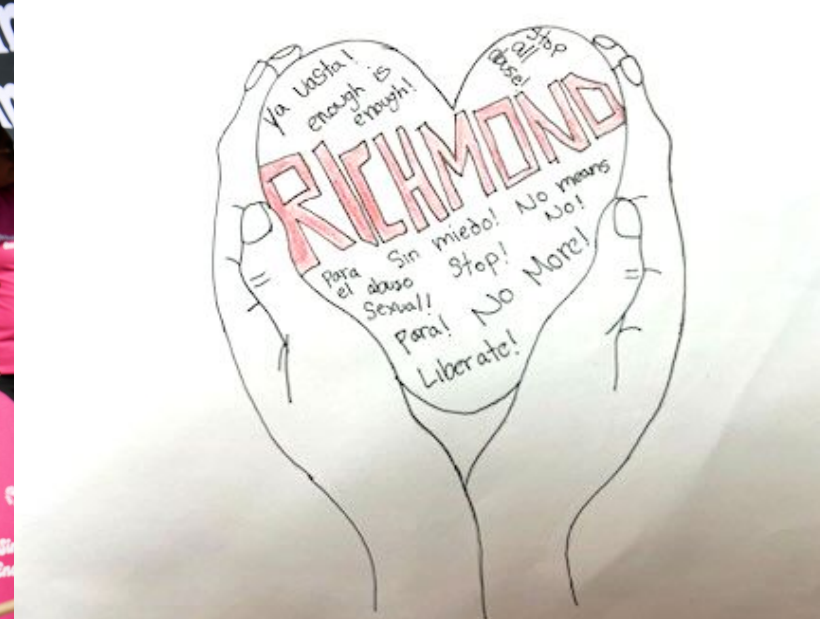 Ya Vasta!
enough is
enough!
Stop
abuse!
RICHMOND
Sin miedo!
No means
No!
Para
el abuso
Sexual!
Stop!
Para!
No More!
Liberate!